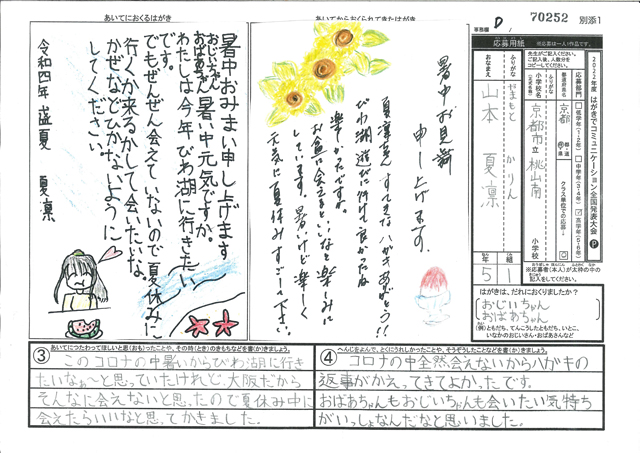 あいてにおくるはがき
暑中おみまい申し上げます
おじいちゃん
おばあちゃん
暑い中元気ですか。
わたしは今年びわ湖に行きたい
です。
でもぜんぜん会えていないので夏休みに
行くか来るかして会いたいな。
かぜなどひかないように
してください。
令和四年盛夏 夏凛
あいてからおくられてきたはがき
暑中お見舞
申し上げます。
夏凛ちゃん すてきなハガキありがとう!!
びわ湖遊びに行けて良かったね
楽しかったですね。
お盆に会えるといいなと楽しみに
しています。暑いけど楽しく
元気に夏休みすごして下さい。
事務欄
D
70252
別添1
2022年度 はがきでコミュニケーション全国発表大会
応募用紙
応募部門
低学年(1・2年)
中学年(3・4年)
高学年(5・6年)
都道府県名
京都
小学校名
京都市立桃山南
小学校
ふりがな
やまもと かりん
おなまえ
山本 夏凛
5
年
1
組
はがきは、だれにおくりましたか?
おじいちゃん
おばあちゃん
(例)ともだち、てんこうしたともだち、いとこ、
いなかのおじいさん・おばあさんなど
③ あいてにつたわってほしいと思(おも)ったことや、その時(とき)のきもちなどを書(か)きましょう。
このコロナの中暑いからびわ湖に行き
たいなぁ〜と思っていたけれど、大阪だから
そんなに会えないと思ったので夏休み中に
会えたらいいなと思ってかきました。
④ へんじをよんで、とくにうれしかったことや、そうぞうしたことなどを書(か)きましょう。
コロナの中全然会えないからハガキの
返事がかえってきてよかったです。
おばあちゃんもおじいちゃんも会いたい気持ち
がいっしょなんだなと思いました。